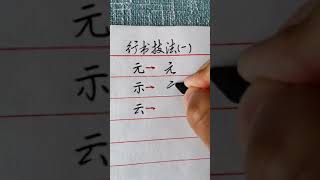 行书技法(一)
元→元
示→
云→